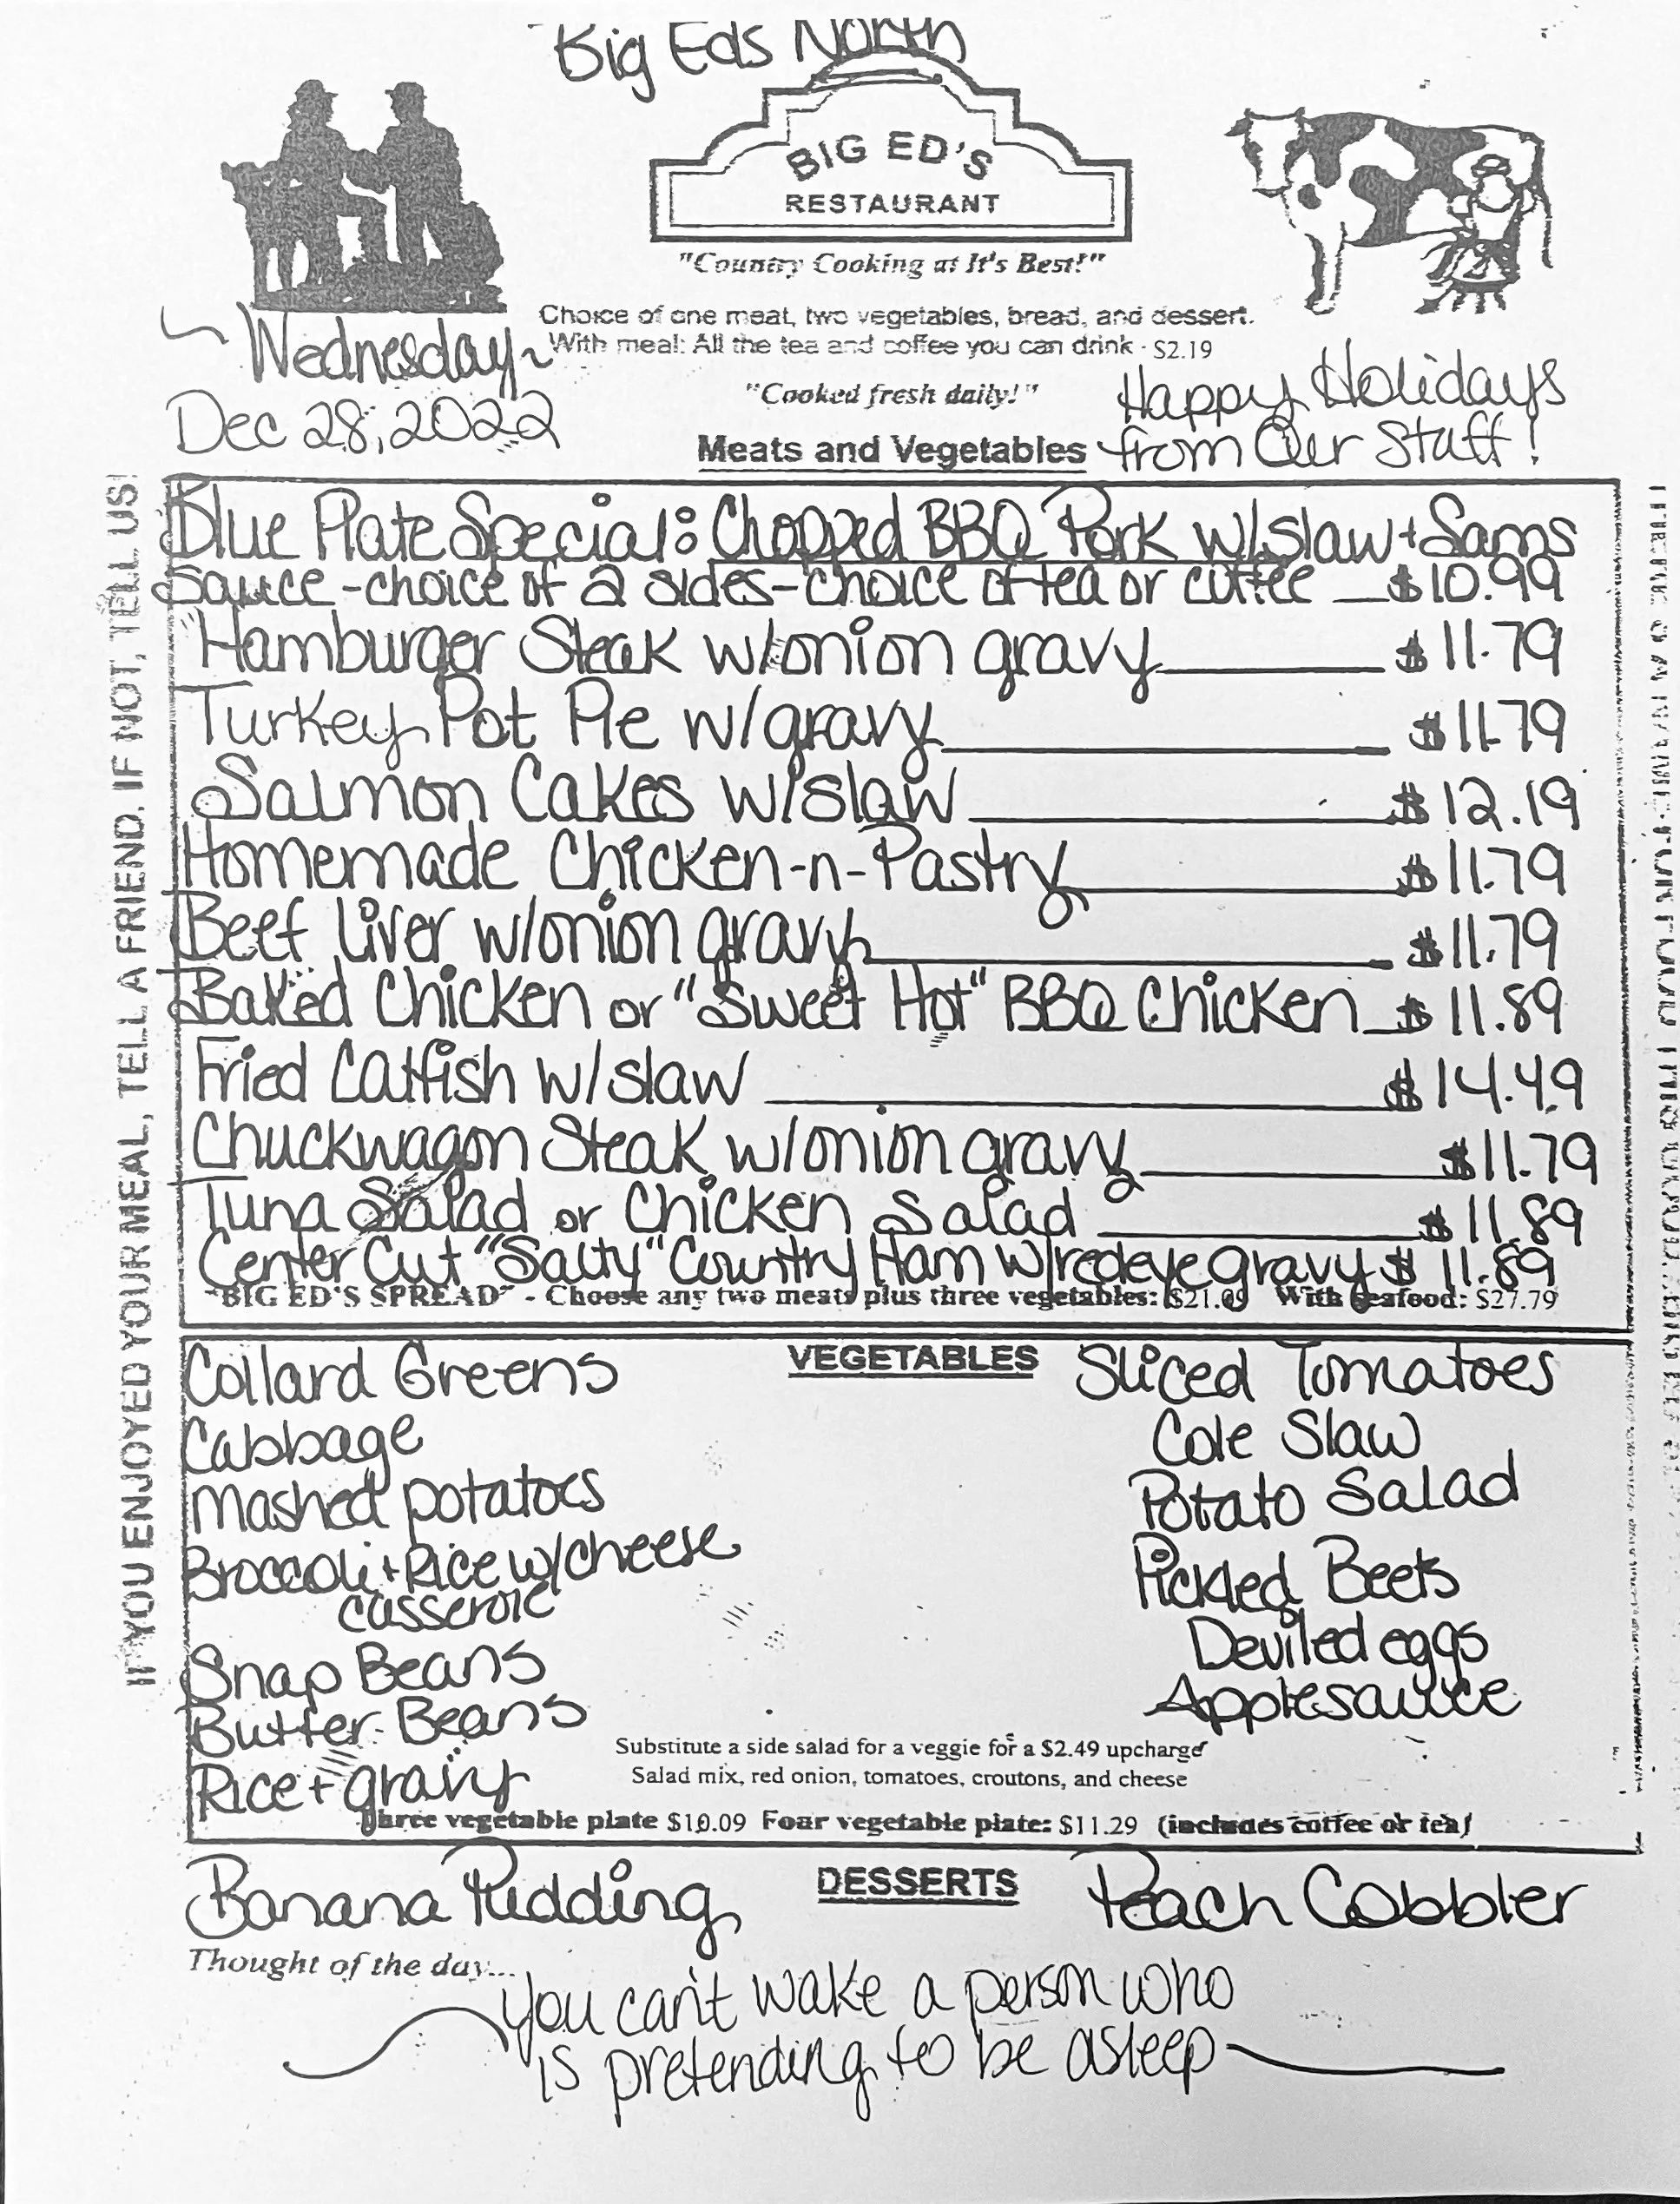 Big Eds North
BIG ED'S
RESTAURANT
"Country Cooking at It's Best!"
Choice of one meat, two vegetables, bread, and dessert.
With meal: All the tea and coffee you can drink - $2.19
"Cooked fresh daily!"
Wednesday
Dec 28, 2022
Happy Holidays
from Our Staff!
Meats and Vegetables
Blue Plate Special: Chopped BBQ Pork w/slaw + Sams
Sauce - choice of 2 sides - choice of tea or coffee $10.99
Hamburger Steak w/onion gravy $11.79
Turkey Pot Pie w/gravy $11.79
Salmon Cakes w/slaw $12.19
Homemade Chicken-n-Pastry $11.79
Beef Liver w/onion gravy $11.79
Baked Chicken or "Sweet Hot" BBQ Chicken $11.89
Fried Catfish w/slaw $14.49
Chuckwagon Steak w/onion gravy $11.79
Tuna Salad or Chicken Salad $11.89
Center Cut "Salty" Country Ham w/redeye gravy $11.89
"BIG ED'S SPREAD" - Choose any two meats plus three vegetables: $21.09 With seafood: $27.79
IF YOU ENJOYED YOUR MEAL, TELL A FRIEND. IF NOT, TELL US!
VEGETABLES
Collard Greens
Cabbage
Mashed potatoes
Broccoli + Rice w/cheese
casserole
Snap Beans
Butter Beans
Rice + gravy
Sliced Tomatoes
Cole Slaw
Potato Salad
Pickled Beets
Deviled eggs
Applesauce
Substitute a side salad for a veggie for a $2.49 upcharge
Salad mix, red onion, tomatoes, croutons, and cheese
Three vegetable plate $10.09 Four vegetable plate: $11.29 (includes coffee or tea)
DESSERTS
Banana Pudding
Peach Cobbler
Thought of the day...
You can't wake a person who
is pretending to be asleep